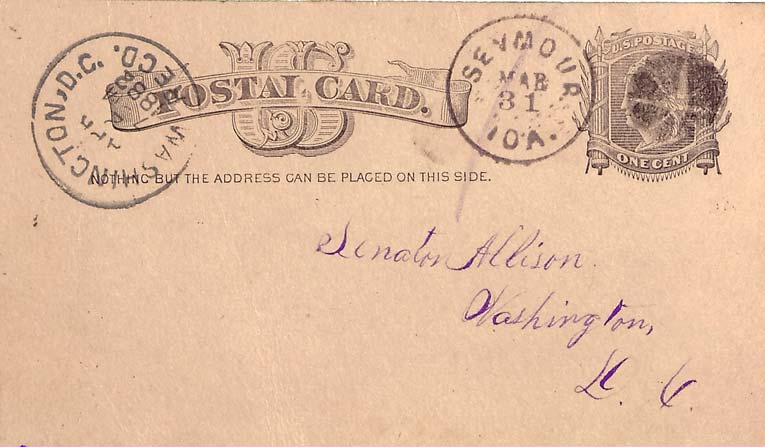 U.S. POSTAGE
ONE CENT
US
POSTAL CARD.
NOTHING BUT THE ADDRESS CAN BE PLACED ON THIS SIDE.
SEYMOUR
MAR
31
IOA.
WASHINGTON, D.C.
REC'D.
Senator Allison.
Washington,
D. C.